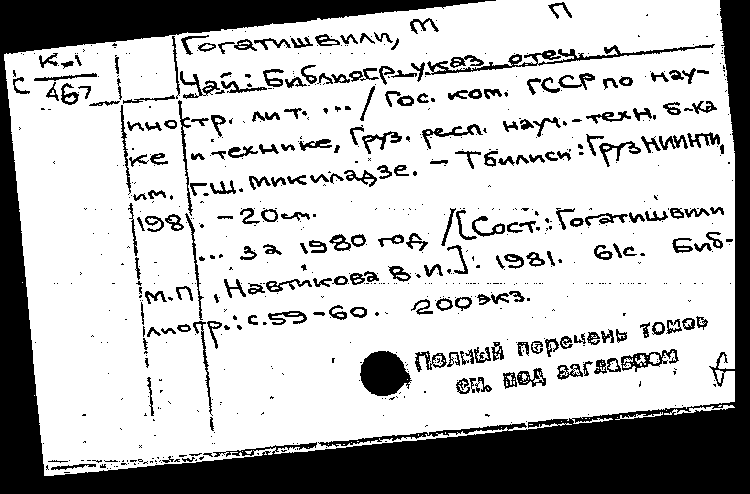 Гогатишвили, М П
К-1
С 467
Чай: Библиогр. указ. отеч. и
иностр. лит. ... / Гос. ком. ГССР по нау-
ке и технике, Груз. респ. науч.-техн. б-ка
им. Г.Ш. Микиладзе. - Тбилиси: ГрузНИИНТИ,
1981. - 20 см.
... за 1980 год / [Сост.: Гогатишвили
М.П., Навтикова В.И.]. 1981. 61с. Биб-
лиогр.: с.59-60. 200 экз.
Полный перечень томов
см. под заглавием